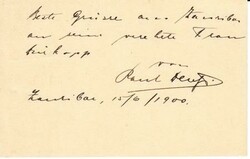 Beste Grüsse aus Zanzibar
an seine verehrte Frau
von
Paul
Zanzibar, 15/6/1900.